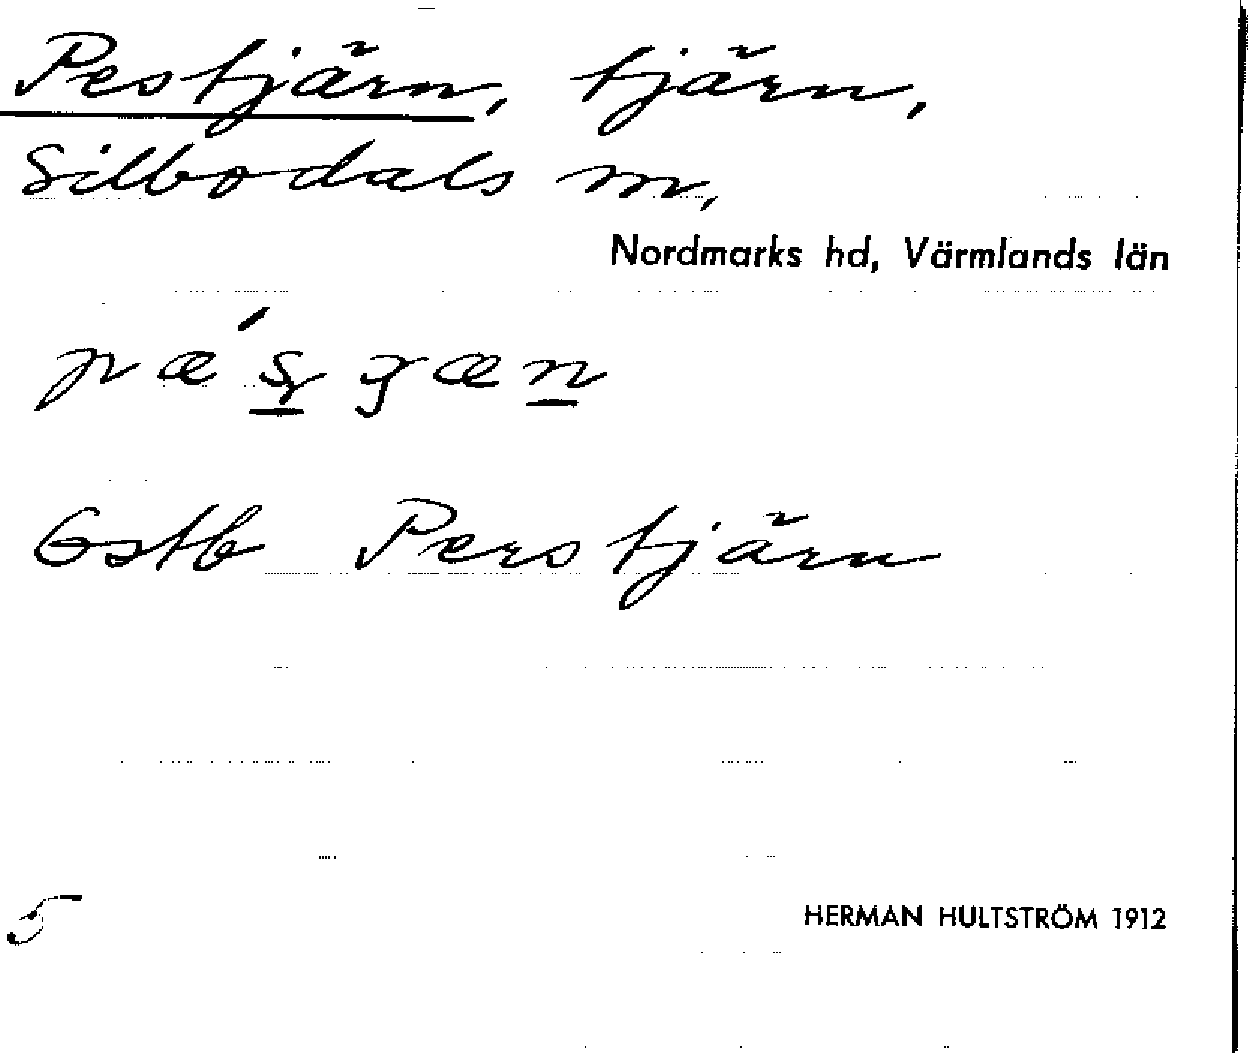 Pestjärn, tjärn,
Silbodals m,
Nordmarks hd, Värmlands län
Gstb Perstjärn
5
HERMAN HULTSTRÖM 1912